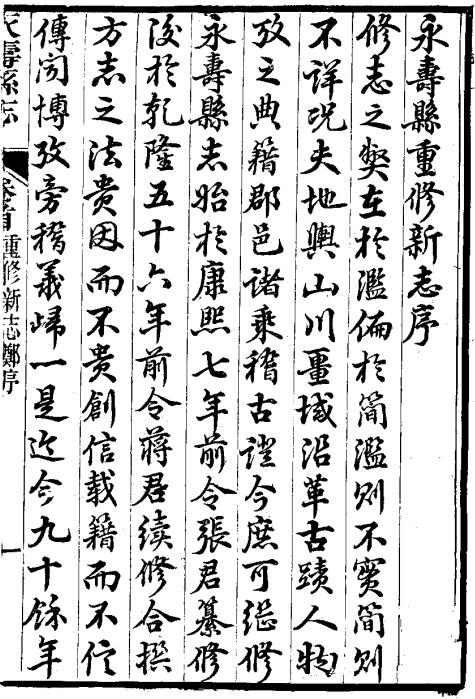 永壽縣重修新志序
修志之獘在於濫偏於簡濫則不實簡則
不詳况夫地輿山川畺域沿革古蹟人物
攷之典籍郡邑諸乘稽古證今庶可繼修
永壽縣志始於康熙七年前令張君纂修
後於乾隆五十六年前令蔣君續修合撰
方志之法貴因而不貴創信載籍而不信
傳聞博攷旁稽義歸一是迄今九十餘年
永壽縣志 卷首 重修新志鄭序 一